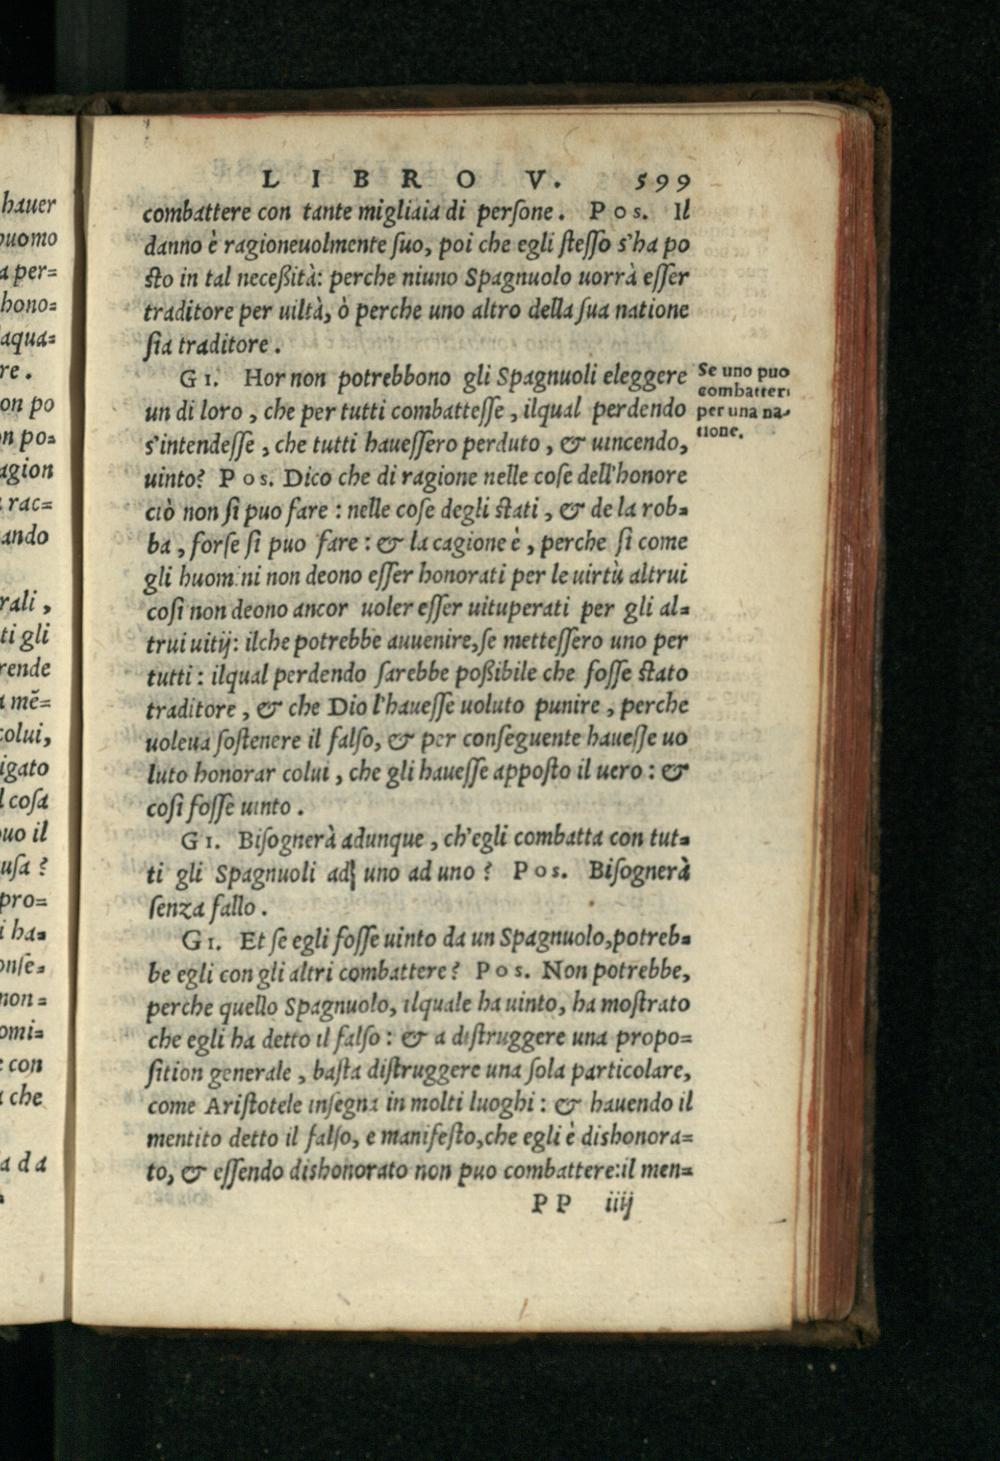 hauer
huomo
a per=
hono=
aqua=
re.
on po
n po=
agion
rac=
ando
rali,
ti gli
rende
a mẽ=
colui,
igato
l cosa
puo il
usa?
pro=
i ha=
onſe=
non=
omi=
e con
a che
a da
LIBRO V. 599
combattere con tante migliaia di perſone. Pos. Il
danno è ragioneuolmente ſuo, poi che egli ſteſſo s'ha po
ſto in tal neceßità: perche niuno Spagnuolo uorrà eſſer
traditore per uiltà, ò perche uno altro della ſua natione
ſia traditore.
GI. Hor non potrebbono gli Spagnuoli eleggere
un di loro, che per tutti combatteſſe, ilqual perdendo
s'intendeſſe, che tutti haueſſero perduto, & uincendo,
uinto? Pos. Dico che di ragione nelle coſe dell'honore
ciò non ſi puo fare: nelle coſe degli ſtati, & de la rob=
ba, forſe ſi puo fare: & la cagione è, perche ſi come
gli huomini non deono eſſer honorati per le uirtù altrui
coſi non deono ancor uoler eſſer uituperati per gli al=
trui uitij: ilche potrebbe auuenire, ſe metteſſero uno per
tutti: ilqual perdendo ſarebbe poßibile che foſſe ſtato
traditore, & che Dio l'haueſſe uoluto punire, perche
uoleua ſoſtenere il falſo, & per conſeguente haueſſe uo
luto honorar colui, che gli haueſſe appoſto il uero: &
coſi foſſe uinto.
GI. Biſognerà adunque, ch'egli combatta con tut=
ti gli Spagnuoli ad uno ad uno? Pos. Biſognerà
ſenza fallo.
GI. Et ſe egli foſſe uinto da un Spagnuolo, potreb=
be egli con gli altri combattere? Pos. Non potrebbe,
perche quello Spagnuolo, ilquale ha uinto, ha moſtrato
che egli ha detto il falſo: & a diſtruggere una propo=
ſition generale, baſta diſtruggere una ſola particolare,
come Ariſtotele inſegna in molti luoghi: & hauendo il
mentito detto il falſo, e manifeſto, che egli è dishonora=
to, & eſſendo dishonorato non puo combattere: il men=
PP iiij
Se uno puo
combatter
per una na-
tione.